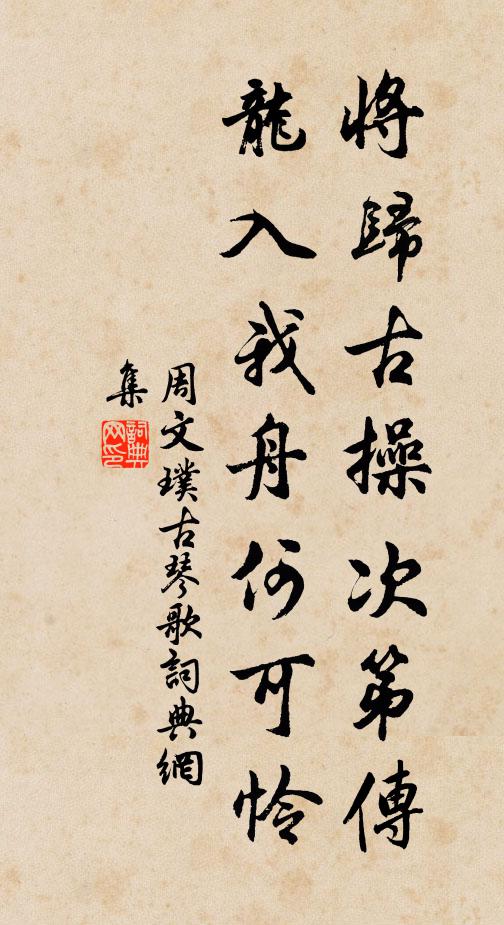 將歸古操次第傳
龍入我舟何可怜
周文璞古琴歌詞典網
集
詞典
网印